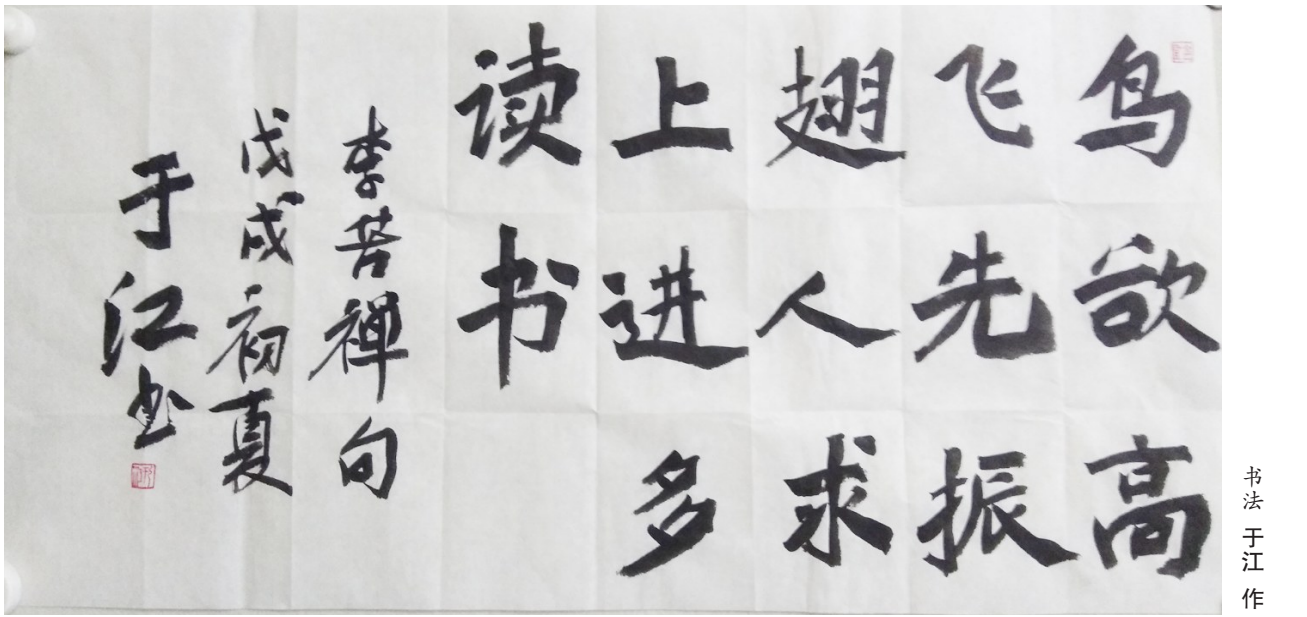 鸟欲高
飞先振
翅人求
上进多
读书
李苦禅句
戊戌初夏
于江书
书法 于江 作